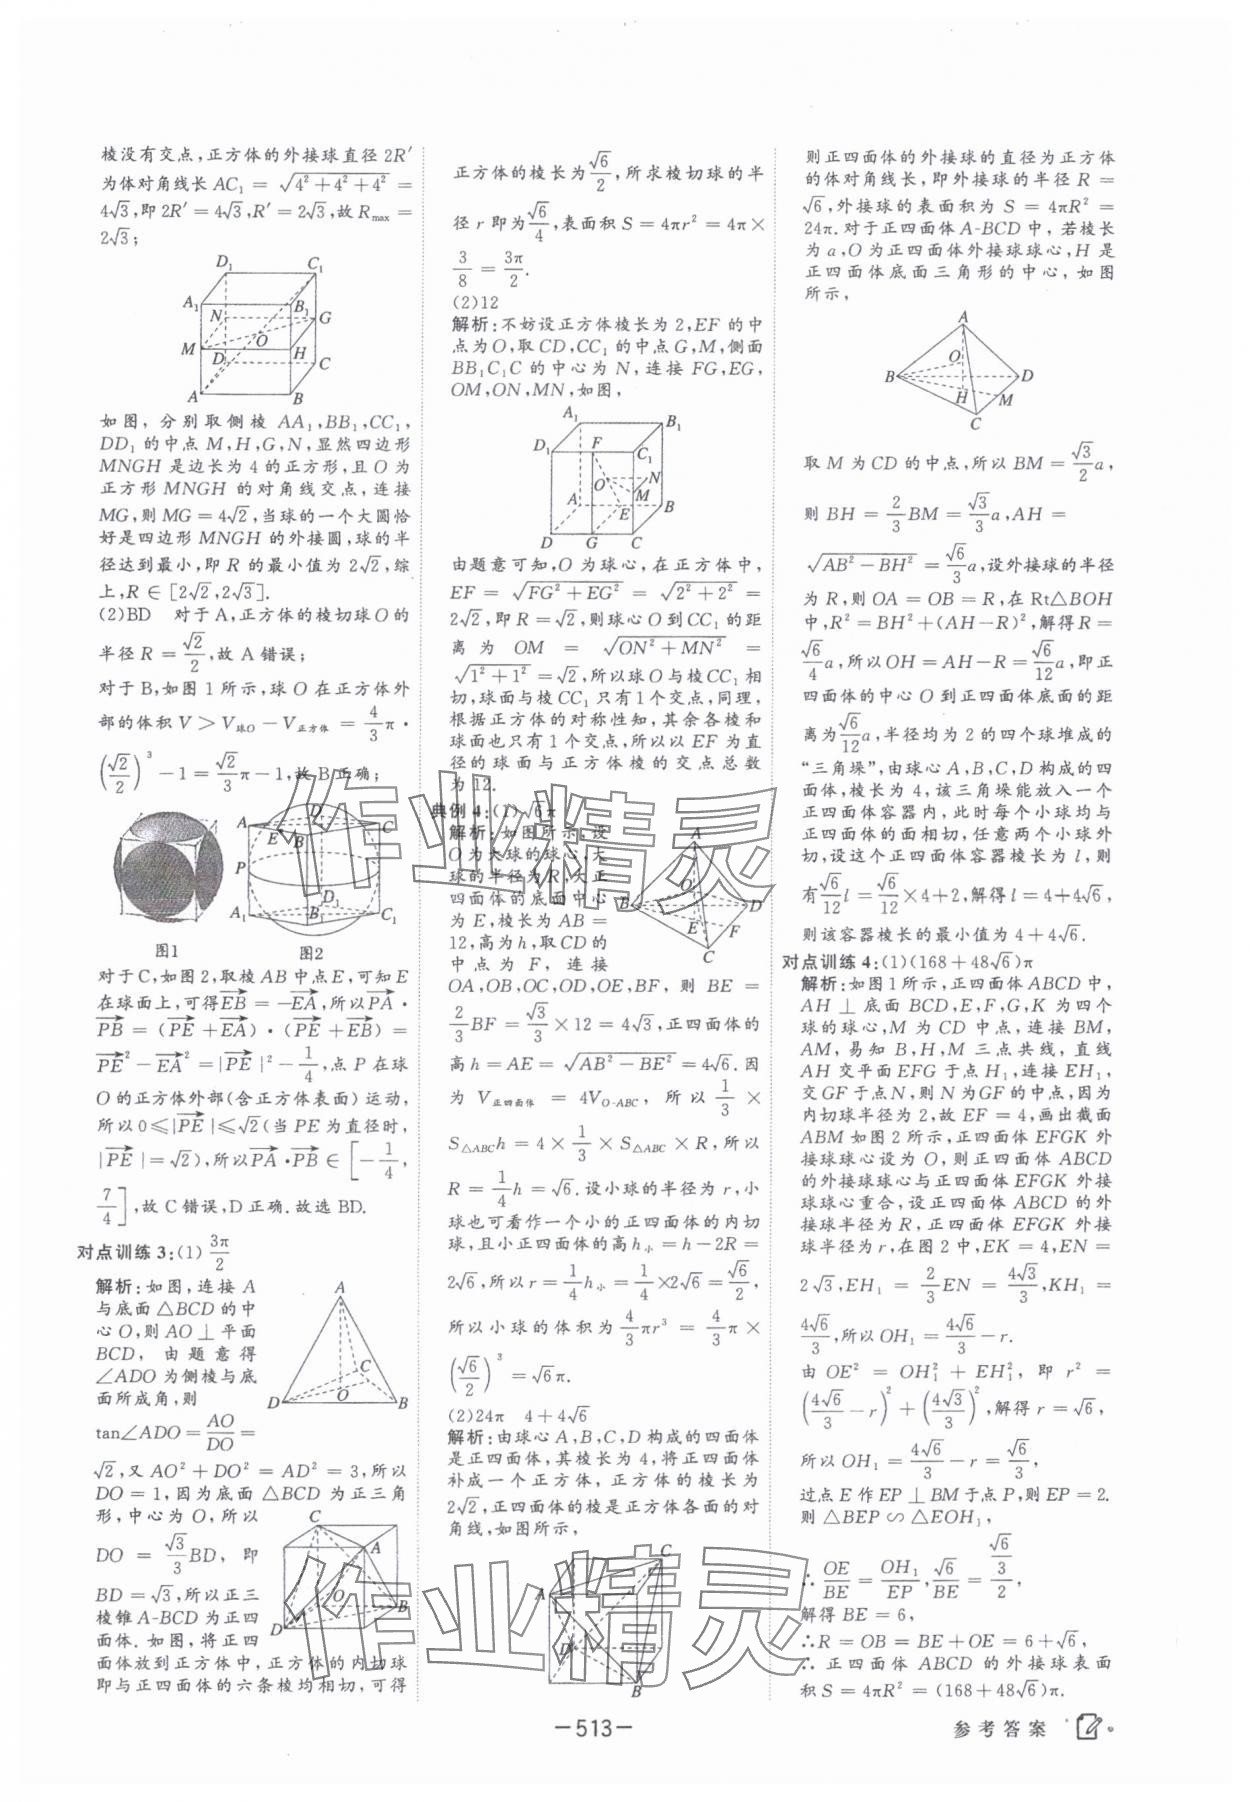 棱没有交点,正方体的外接球直径 2R′
为体对角线长 AC₁ = √(4²+4²+4²) =
4√3,即 2R′=4√3,R′=2√3,故 Rₘₐₓ =
2√3;
D₁ C₁
A₁ B₁
N G
O
M H
D C
A B
如图,分别取侧棱 AA₁,BB₁,CC₁,
DD₁ 的中点 M,H,G,N,显然四边形
MNGH 是边长为 4 的正方形,且 O 为
正方形 MNGH 的对角线交点,连接
MG,则 MG=4√2,当球的一个大圆恰
好是四边形 MNGH 的外接圆,球的半
径达到最小,即 R 的最小值为 2√2,综
上,R∈[2√2,2√3].
(2)BD 对于 A,正方体的棱切球 O 的
半径 R=√2/2,故 A 错误;
对于 B,如图 1 所示,球 O 在正方体外
部的体积 V>V球O-V正方体=4/3π·
(√2/2)³-1=√2/3π-1,故 B 正确;
图1 图2
对于 C,如图 2,取棱 AB 中点 E,可知 E
在球面上,可得EB=-EA,所以PA·
PB=(PE+EA)·(PE+EB)=
PE²-EA²=|PE|²-1/4,点 P 在球
O 的正方体外部(含正方体表面)运动,
所以 0≤|PE|≤√2(当 PE 为直径时,
|PE|=√2),所以PA·PB∈[-1/4,
7/4],故 C 错误,D 正确.故选 BD.
对点训练 3:(1)3π/2
解析:如图,连接 A
与底面△BCD 的中
心 O,则 AO⊥平面
BCD,由题意得
∠ADO 为侧棱与底
面所成角,则
tan∠ADO=AO/DO=
√2,又 AO²+DO²=AD²=3,所以
DO=1,因为底面△BCD 为正三角
形,中心为 O,所以
DO=√3/3BD,即
BD=√3,所以正三
棱锥 A-BCD 为正四
面体.如图,将正四
面体放到正方体中,正方体的内切球
即与正四面体的六条棱均相切,可得
正方体的棱长为√6/2,所求棱切球的半
径 r 即为√6/4,表面积 S=4πr²=4π×
3/8=3π/2.
(2)12
解析:不妨设正方体棱长为 2,EF 的中
点为 O,取 CD,CC₁ 的中点 G,M,侧面
BB₁C₁C 的中心为 N,连接 FG,EG,
OM,ON,MN,如图,
A₁ B₁
D₁ F C₁
O N
A M B
E
D G C
由题意可知,O 为球心,在正方体中,
EF=√(FG²+EG²)=√(2²+2²)=
2√2,即 R=√2,则球心 O 到 CC₁ 的距
离为 OM=√(ON²+MN²)=
√(1²+1²)=√2,所以球 O 与棱 CC₁ 相
切,球面与棱 CC₁ 只有 1 个交点,同理,
根据正方体的对称性知,其余各棱和
球面也只有 1 个交点,所以以 EF 为直
径的球面与正方体棱的交点总数
为 12.
典例 4:(1)√6π
解析:如图所示,设
O 为大球的球心,大
球的半径为 R,大正
四面体的底面中心
为 E,棱长为 AB=
12,高为 h,取 CD 的
中点为 F,连接
OA,OB,OC,OD,OE,BF,则 BE=
2/3BF=√3/3×12=4√3,正四面体的
高 h=AE=√(AB²-BE²)=4√6.因
为 V正四面体=4V_O-ABC,所以1/3×
S△ABCh=4×1/3×S△ABC×R,所以
R=1/4h=√6.设小球的半径为 r,小
球也可看作一个小的正四面体的内切
球,且小正四面体的高 h小=h-2R=
2√6,所以 r=1/4h小=1/4×2√6=√6/2,
所以小球的体积为4/3πr³=4/3π×
(√6/2)³=√6π.
(2)24π 4+4√6
解析:由球心 A,B,C,D 构成的四面体
是正四面体,其棱长为 4,将正四面体
补成一个正方体,正方体的棱长为
2√2,正四面体的棱是正方体各面的对
角线,如图所示,
则正四面体的外接球的直径为正方体
的体对角线长,即外接球的半径 R=
√6,外接球的表面积为 S=4πR²=
24π.对于正四面体 A-BCD 中,若棱长
为 a,O 为正四面体外接球球心,H 是
正四面体底面三角形的中心,如图
所示,
A
O
B D
H M
C
取 M 为 CD 的中点,所以 BM=√3/2a,
则 BH=2/3BM=√3/3a,AH=
√(AB²-BH²)=√6/3a,设外接球的半径
为 R,则 OA=OB=R,在 Rt△BOH
中,R²=BH²+(AH-R)²,解得 R=
√6/4a,所以 OH=AH-R=√6/12a,即正
四面体的中心 O 到正四面体底面的距
离为√6/12a,半径均为 2 的四个球堆成的
“三角垛”,由球心 A,B,C,D 构成的四
面体,棱长为 4,该三角垛能放入一个
正四面体容器内,此时每个小球均与
正四面体的面相切,任意两个小球外
切,设这个正四面体容器棱长为 l,则
有√6/12l=√6/12×4+2,解得 l=4+4√6,
则该容器棱长的最小值为 4+4√6.
对点训练 4:(1)(168+48√6)π
解析:如图 1 所示,正四面体 ABCD 中,
AH⊥底面 BCD,E,F,G,K 为四个
球的球心,M 为 CD 中点,连接 BM,
AM,易知 B,H,M 三点共线,直线
AH 交平面 EFG 于点 H₁,连接 EH₁,
交 GF 于点 N,则 N 为 GF 的中点,因为
内切球半径为 2,故 EF=4,画出截面
ABM 如图 2 所示,正四面体 EFGK 外
接球球心设为 O,则正四面体 ABCD
的外接球球心与正四面体 EFGK 外接
球球心重合,设正四面体 ABCD 的外
接球半径为 R,正四面体 EFGK 外接
球半径为 r,在图 2 中,EK=4,EN=
2√3,EH₁=2/3EN=4√3/3,KH₁=
4√6/3,所以 OH₁=4√6/3-r.
由 OE²=OH₁²+EH₁²,即 r²=
(4√6/3-r)²+(4√3/3)²,解得 r=√6,
所以 OH₁=4√6/3-r=√6/3,
过点 E 作 EP⊥BM 于点 P,则 EP=2.
则△BEP∽△EOH₁,
∴OE/BE=OH₁/EP,√6/BE=(√6/3)/2,
解得 BE=6,
∴R=OB=BE+OE=6+√6,
∴正四面体 ABCD 的外接球表面
积 S=4πR²=(168+48√6)π.
—513—
参考答案
作业精灵
作业精灵